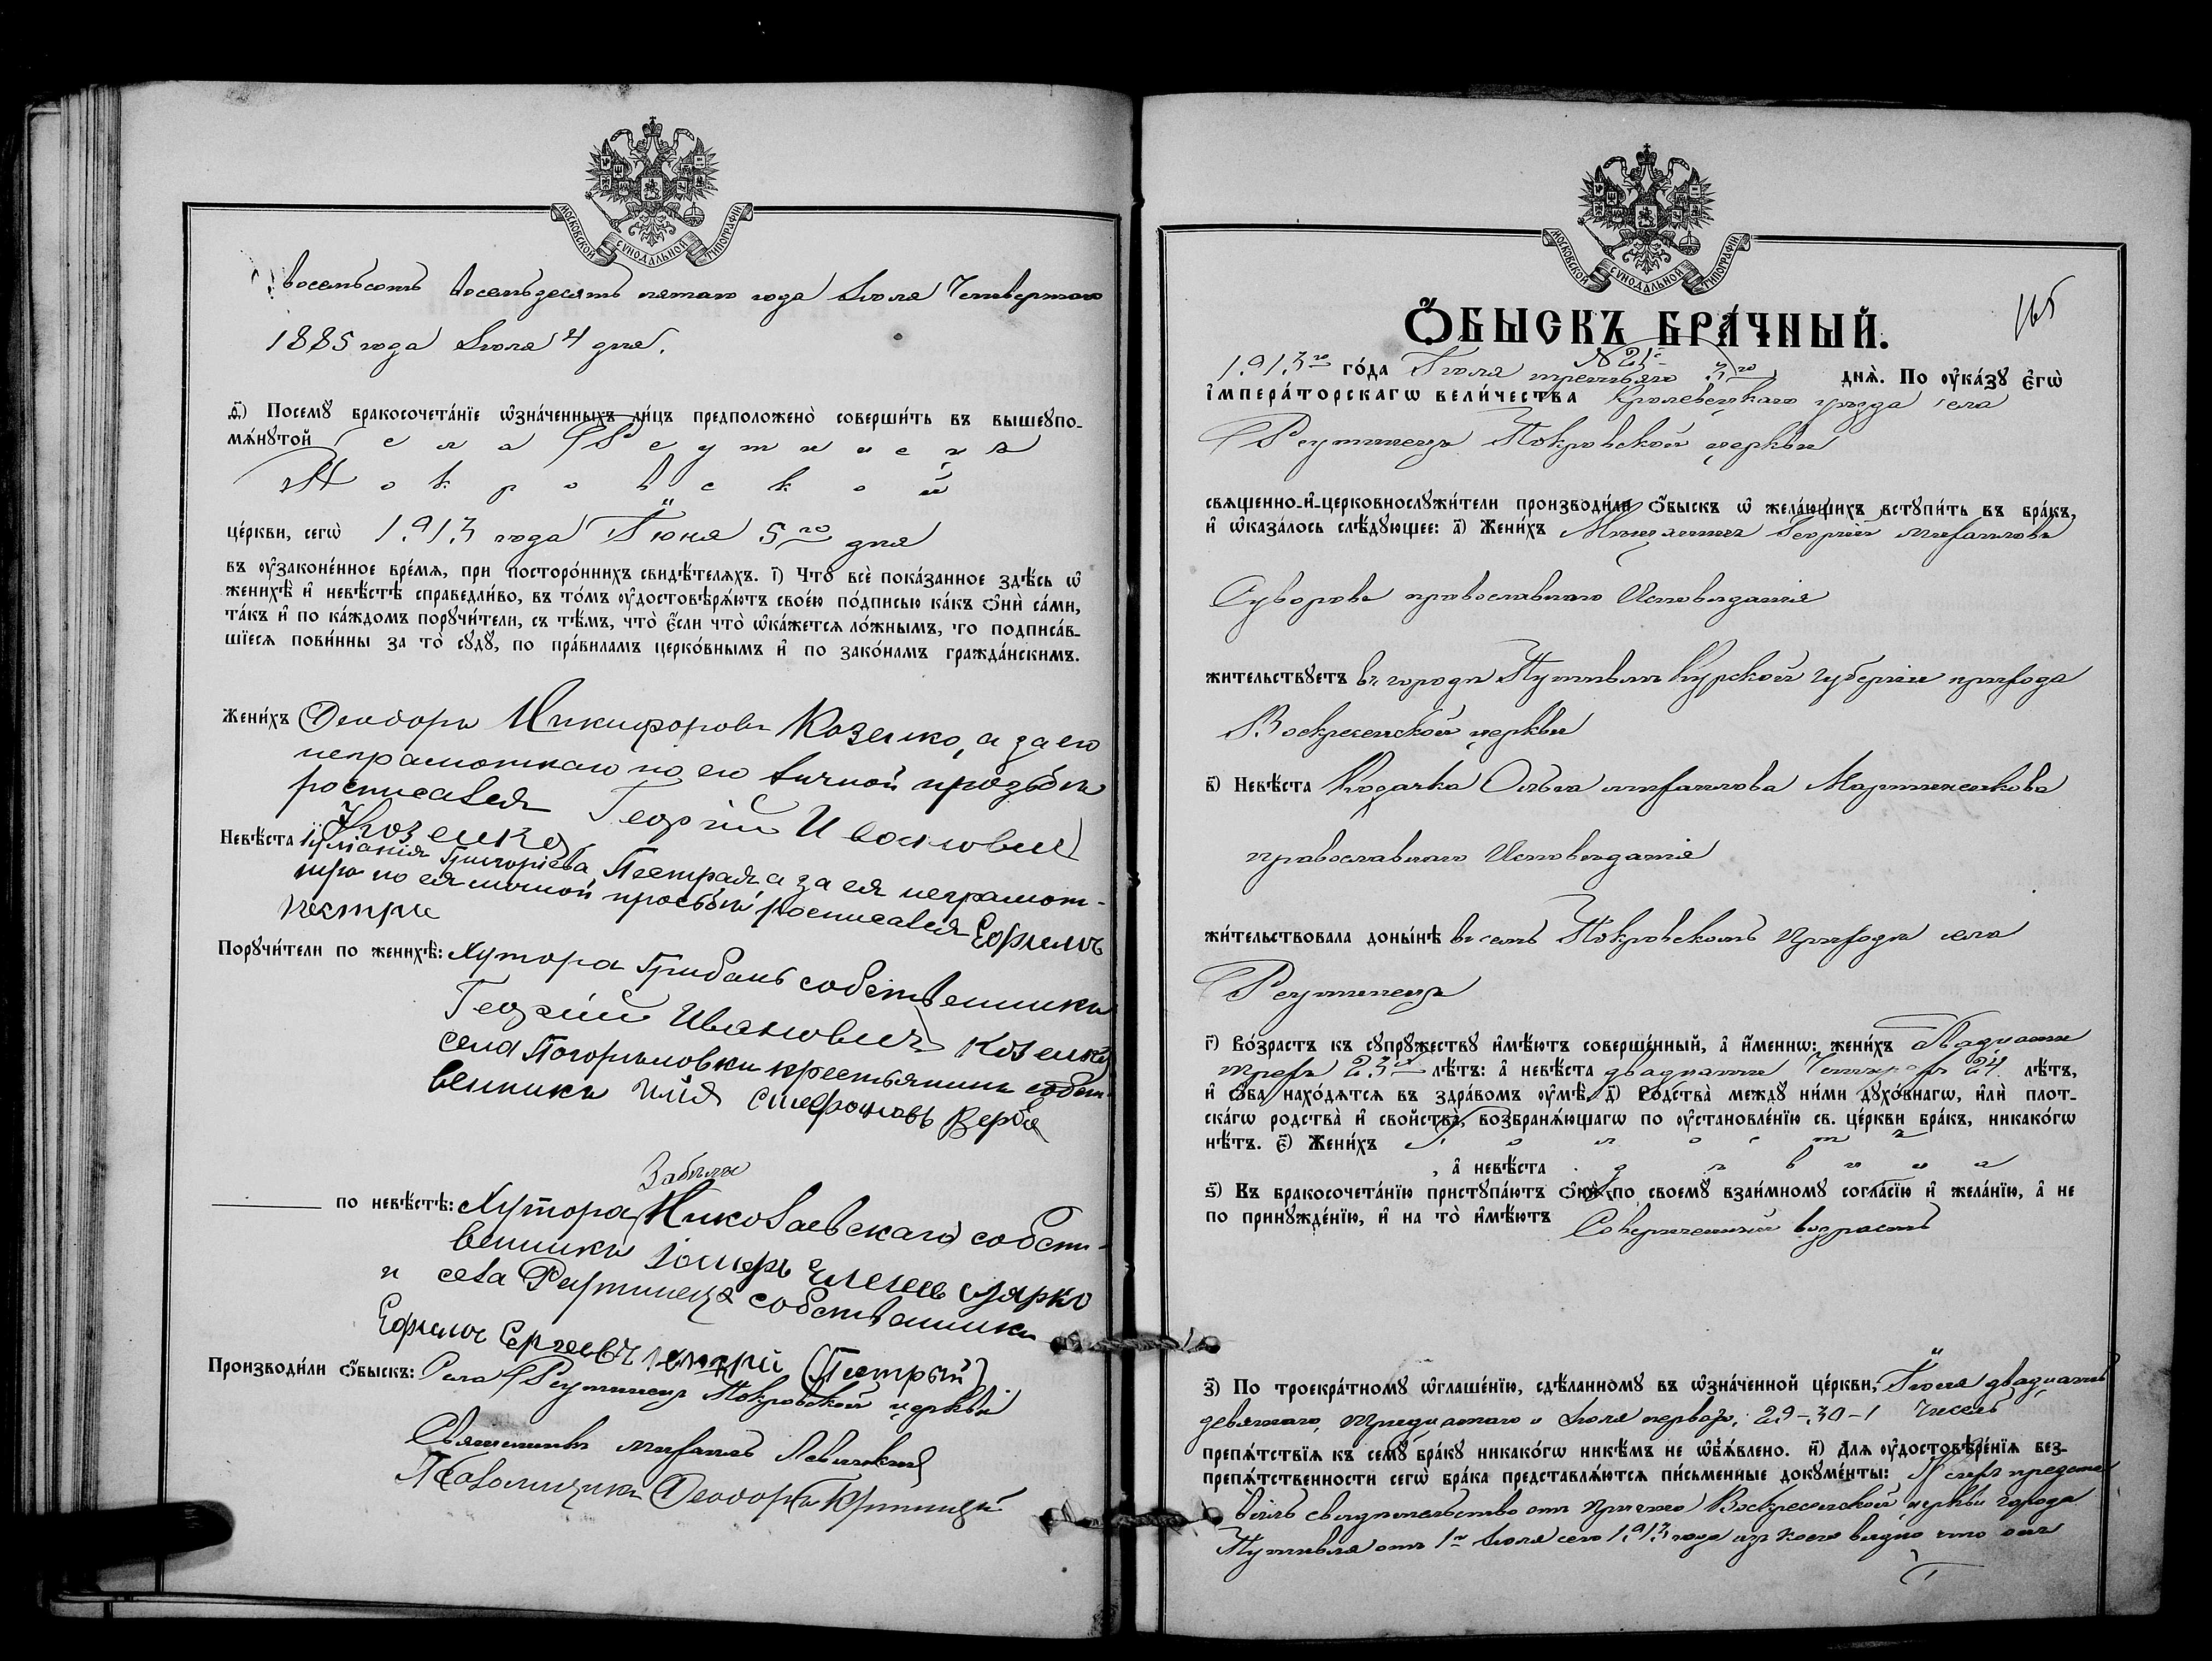 МОСКОВСКОЙ СѴНОДАЛЬНОЙ ТИПОГРАФІИ
восемьсотъ восемьдесятъ пятаго года Іюля Четвертаго
1885 года Іюля 4 дня.
ѳ҃) Посемꙋ̀ бракосочета́нїе ѡ҆зна́ченныхъ ли́цъ предположено̀ соверши́ть въ вышеꙋпо-
мѧ́нꙋтой села Реутинецъ
Покровской
це́ркви, сегѡ̀ 1913 года Іюня 5го дня
въ ᲂу҆законе́нное вре́мѧ, при посторо́ннихъ свидѣ́телѧхъ. і҃) Что̀ всѐ пока́занное здѣ́сь ѡ҆
женихѣ̀ и҆ невѣ́стѣ справедли́во, въ то́мъ ᲂу҆достовѣрѧ́ютъ свое́ю по́дписью ка́къ ѻ҆нѝ са́ми,
та́къ и҆ по ка́ждомъ порꙋчи́тели, съ тѣ́мъ, что̀ є҆́сли что̀ ѡ҆ка́жетсѧ ло́жнымъ, то подписа́в-
шїесѧ пови́нны за то̀ сꙋдꙋ̀, по пра́виламъ церко́внымъ и҆ по зако́намъ гражда́нскимъ.
Жени́хъ Ѳеодоръ Никифоровъ Козенко, а за его
неграмотнаго по его личной прозьбѣ
росписался Георгій Ивановичъ
Козенко
Невѣ́ста Григоріева Пестрая а за ея неграмот-
ную по ея личной просьбѣ росписался Ефимъ
пестрие
Порꙋчи́тели по женихѣ̀: Хутора Грибань собственникъ
Георгій Ивановичъ Козенко
села Погорѣловки крестьянинъ собст-
венникъ Илія Стефановъ Верба
Забилы
по невѣ́стѣ: Хутора Николаевскаго собст-
венникъ
и села Реутинецъ собственникъ
Ефимъ Сергеевичъ (Пестрый)
Производи́ли ѻ҆́быскъ: Села Реутинецъ Покровской церкви
Священникъ Михаилъ Левицкій
Псаломщикъ Ѳеодоръ
МОСКОВСКОЙ СѴНОДАЛЬНОЙ ТИПОГРАФІИ
165
Ѻ҆́БЫСКЪ БРА́ЧНЫЙ.
№ 21
1913го го́да Іюля третьяго 3го днѧ̀. По ᲂу҆ка́зꙋ є҆гѡ̀
і҆мпера́торскагѡ вели́чества Кролевецкаго уѣзда села
Реутинецъ Покровской церкви
свѧще́нно-и҆-церковнослꙋжи́тели производи́ли ѻ҆́быскъ ѡ҆ жела́ющихъ встꙋпи́ть въ бра́къ,
и҆ ѡ҆каза́лось слѣ́дꙋющее: а҃) Жени́хъ Мѣщанинъ Георгій Михаиловъ
Суворовъ православнаго Исповѣданія
жи́тельствꙋетъ въ городѣ Путивлѣ Курской губерніи прихода
Воскресенской церкви
в҃) Невѣ́ста Козачка Ольга Михаилова Мартиненкова
православнаго Исповѣданія
жи́тельствовала доны́нѣ въ семъ Покровскомъ Приходѣ села
Реутинецъ
г҃) Во́зрастъ къ сꙋпрꙋ́жествꙋ и҆мѣ́ютъ соверше́нный, а҆ и҆́меннѡ: жени́хъ Двадцати
трехъ 23хъ лѣ́тъ: а҆ невѣ́ста двадцати Четырехъ 24 лѣ́тъ,
и҆ ѻ҆́ба нахо́дѧтсѧ въ здра́вомъ ᲂу҆мѣ̀. д҃) Ро́дства междꙋ̀ ни́ми дꙋхо́внагѡ, и҆лѝ плот-
ска́гѡ родства̀ и҆ сво́йства, возбранѧ́ющагѡ по ᲂу҆становле́нїю св. це́ркви бра́къ, никако́гѡ
нѣ́тъ. є҃) Жени́хъ Холостъ
, а҆ невѣ́ста дѣвица
ѕ҃) Въ бракосочета́нїю пристꙋпа́ютъ ѻ҆нѝ по своемꙋ̀ взаи́мномꙋ согла́сїю и҆ жела́нїю, а҆ не
по принꙋжде́нїю, и҆ на то̀ и҆мѣ́ютъ Совершенный возрастъ
з҃) По троекра́тномꙋ ѡ҆глаше́нїю, сдѣ́ланномꙋ въ ѡ҆зна́ченной це́ркви, Іюня двадцать
девятаго, тридцатаго и Іюля перваго, 29-30-1 Чиселъ
препѧ́тствїѧ къ семꙋ̀ бра́кꙋ никако́гѡ никѣ́мъ не ѡ҆б̾ѧ́влено. и҃) Длѧ ᲂу҆достовѣре́нїѧ без-
препѧ́тственности сегѡ̀ бра́ка представлѧ́ютсѧ пи́сьменные докꙋме́нты: Женихъ предста-
вилъ свидѣтельство отъ Причта Воскресенской церкви города
Путивля отъ 1го Іюля сего 1913 года изъ коего видно что онъ